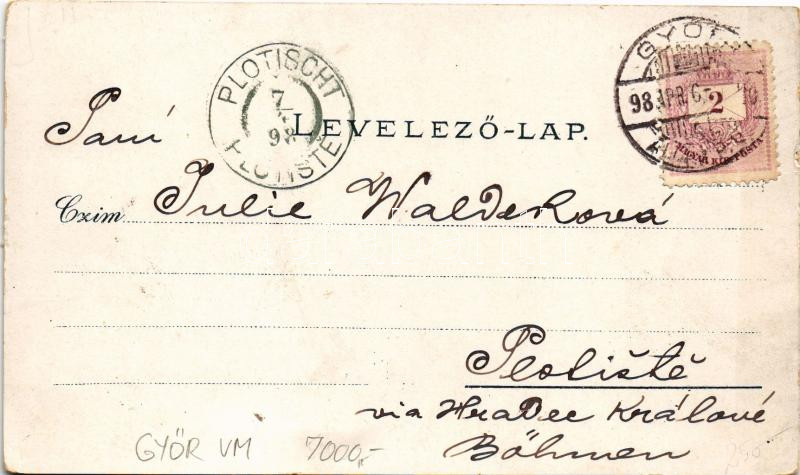 GYŐR
98 APR. 6.
2
MAGYAR KIR. POSTA
PLOTISCHT
7/4
98
PLOTIŠTĚ
LEVELEZŐ-LAP.
Paní
Czim Julie Walderková
Plotiště
via Hradec Králové
Böhmen
GYŐR VM 7000,-